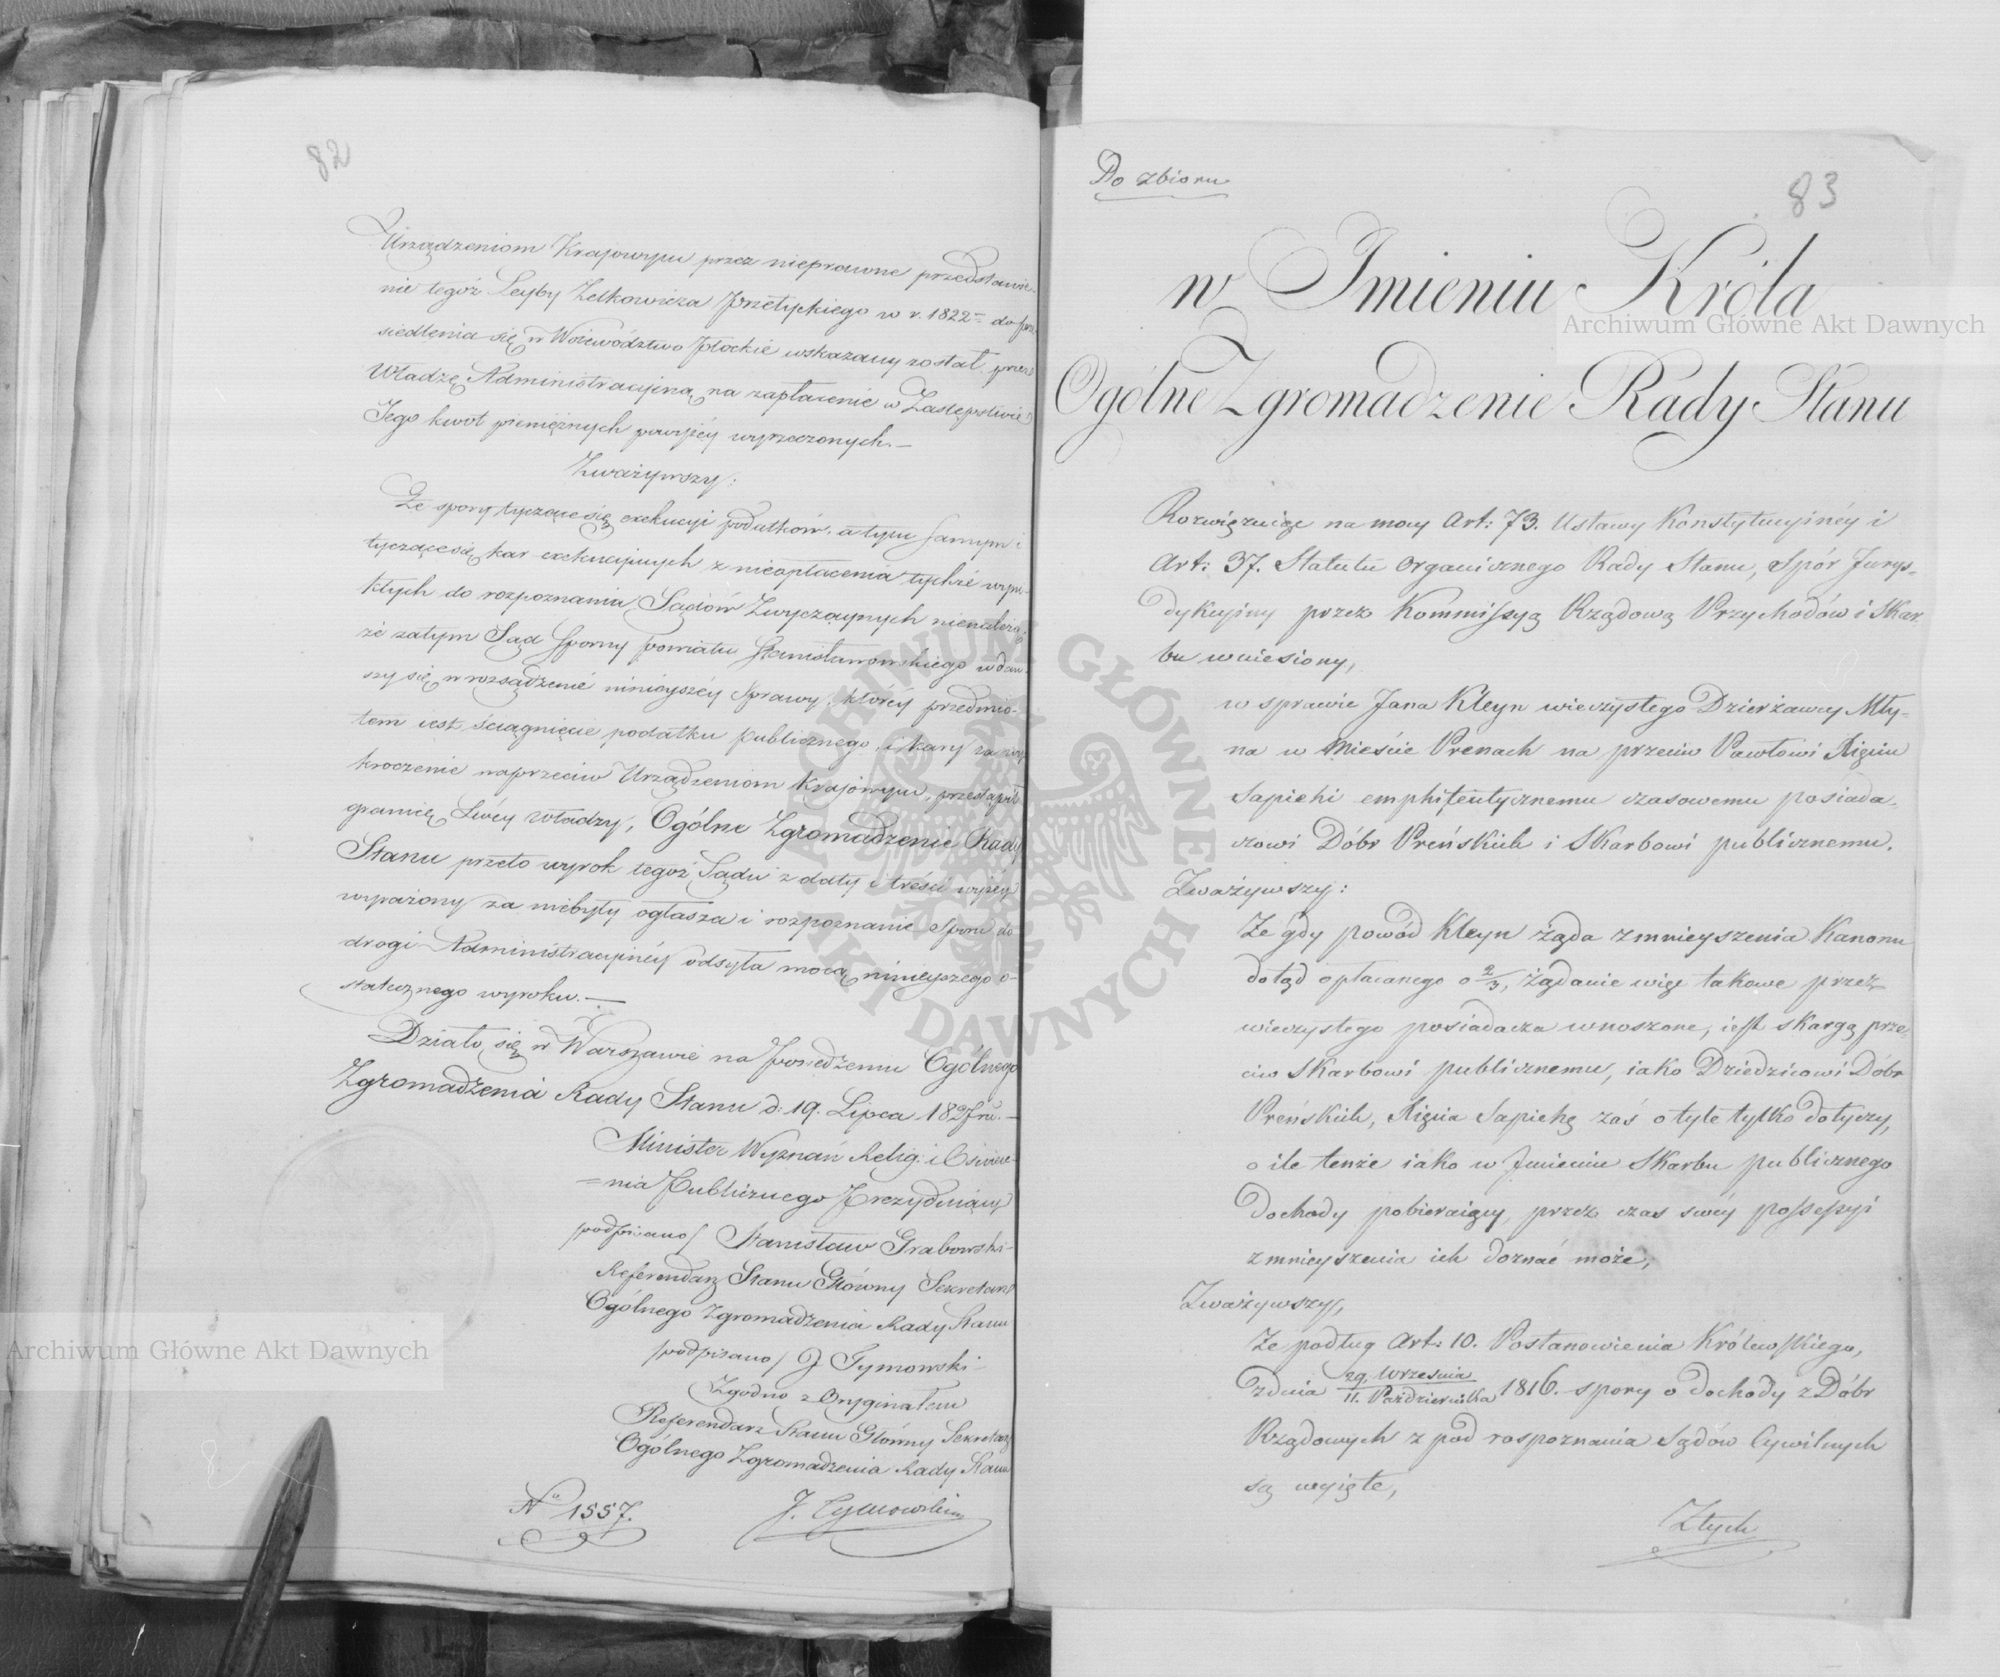 82
Urządzeniom Krajowym przez nieprawne przedstawie-
nie tegoż Leyby Zelkowicza Przetyckiego w r. 1822 do prze
siedlenia się w Woiewództwo Płockie wskazany został przez
Władzę Administracyiną na zapłacenie w Zastępstwie
Jego kwot pieniężnych powyżéy wyrzeczonych.—
Zważywszy:
Że spory tyczące się exekucyi podatków, a tym samym i
tyczące się kar exekucyinych z nieopłacenia tychże wyni-
kłych do rozpoznania Sądów Zwyczaynych nienależą,
że zatym Sąd Sporny Powiatu Stanisławowskiego wdaw-
szy się w rozsądzenie ninieyszéy Sprawy, któréy przedmio-
tem iest ściągnięcie podatku publicznego, i kary za wy-
kroczenie naprzeciw Urządzeniom Krajowym, przestąpił
granicę Swéy władzy, Ogólne Zgromadzenie Rady
Stanu przeto wyrok tegoż Sądu z daty i treści wyżéy
wyrażony za niebyły ogłasza i rozpoznanie Sporu do
drogi Administracyinéy odsyła mocą ninieyszego o-
statecznego wyroku.—
Działo się w Warszawie na Posiedzeniu Ogólnego
Zgromadzenia Rady Stanu d: 19. Lipca 1827 ru.—
Minister Wyznań Relig: i Oświece-
=nia Publicznego Prezyduiący
/podpisano/ Stanisław Grabowski
Referendarz Stanu Główny Sekretarz
Ogólnego Zgromadzenia Rady Stanu
/podpisano/ J Tymowski
Zgodno z Oryginałem
Referendarz Stanu Główny Sekretarz
Ogólnego Zgromadzenia Rady Stanu
No 1557.
J. Tymowski
Do zbioru
83
w Imieniu Króla
Ogólne Zgromadzenie Rady Stanu
Rozwięzuiąc na mocy Art: 73. Ustawy Konstytucyinéy i
Art: 37. Statutu Organicznego Rady Stanu, Spór Jurys-
dykcyiny przez Kommissyą Rządową Przychodów i Skar
bu wniesiony,
w sprawie Jana Kleyn wieczystego Dzierżawcy Mły-
na w Mieście Prenach na przeciw Pawłowi Xięciu
Sapiehi emphiteutycznemu czasowemu posiada-
czowi Dóbr Preńskich i Skarbowi publicznemu.
Zważywszy:
Że gdy powód Kleyn żąda zmnieyszenia Kanonu
dotąd opłacanego o 2/3, żądanie więc takowe przez
wieczystego posiadacza wnoszone, iest skargą prze-
ciw Skarbowi publicznemu, iako Dziedzicowi Dóbr
Preńskich, Xięcia Sapiehę zaś o tyle tylko dotyczy,
o ile tenże iako w Imieniu Skarbu publicznego
dochody pobieraiący, przez czas swéy possessyi
zmnieyszenia ich doznać może,
Zważywszy,
że podług Art: 10. Postanowienia Królewskiego,
z dnia 29. Września/11. Października 1816. spory o dochody z Dóbr
Rządowych z pod rozpoznania Sądów Cywilnych
są wyięte,
Z tych
Archiwum Główne Akt Dawnych
Archiwum Główne Akt Dawnych
ARCHIWUM GŁÓWNE AKT DAWNYCH